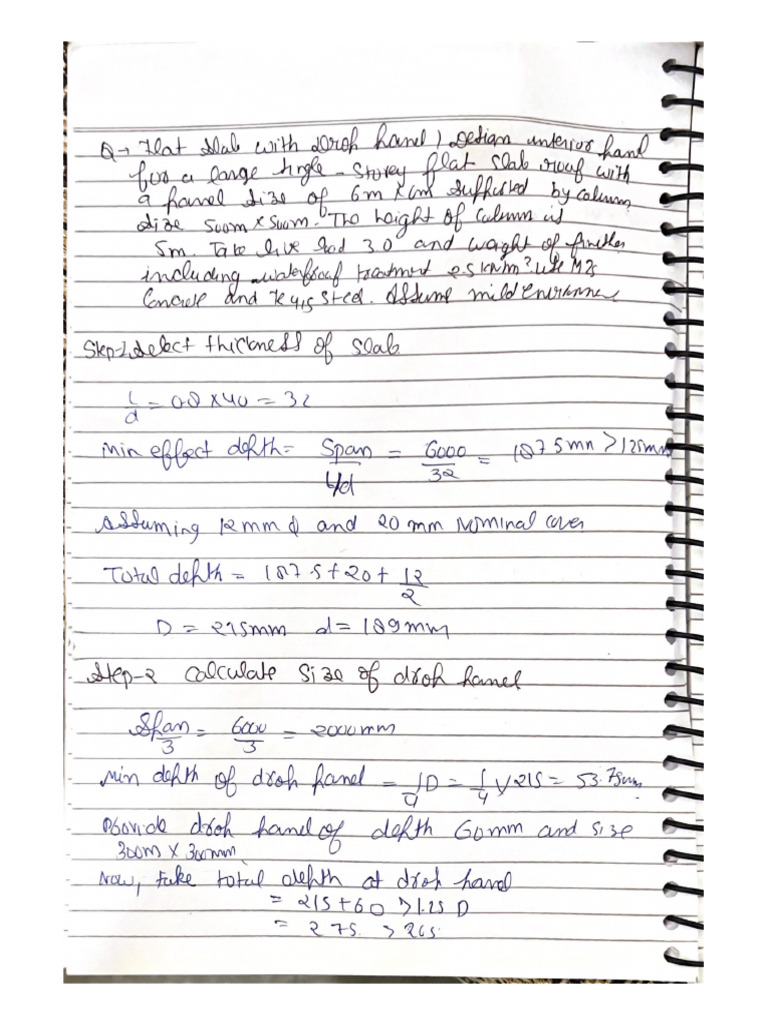 Q→ Flat slab with drop panel) Design interior panel
for a large single-storey flat slab roof with
a panel size of 6m x 6m supported by column
size 500m x 500m. The height of column is
5m. Take live load 3.0 and weight of finishes
including waterproof treatment 2.5 kN/m². Use M25
Concrete and Fe 415 steel. Assume mild
Step-1 select thickness of slab
l/d = 0.8 x 40 = 32
min effect depth = Span / l/d = 6000/32 = 187.5mm > 125mm
Assuming 12mm ϕ and 20 mm Nominal cover
Total depth = 187.5 + 20 + 12/2
D = 215mm d = 189mm
Step-2 Calculate size of drop panel
Span/3 = 6000/3 = 2000mm
Min depth of drop panel = 1/4 D = 1/4 x 215 = 53.75mm
Provide drop panel of depth 60mm and size
300m x 300mm
Now, take total depth at drop panel
= 215 + 60 > 1.25 D
= 275 > 265.